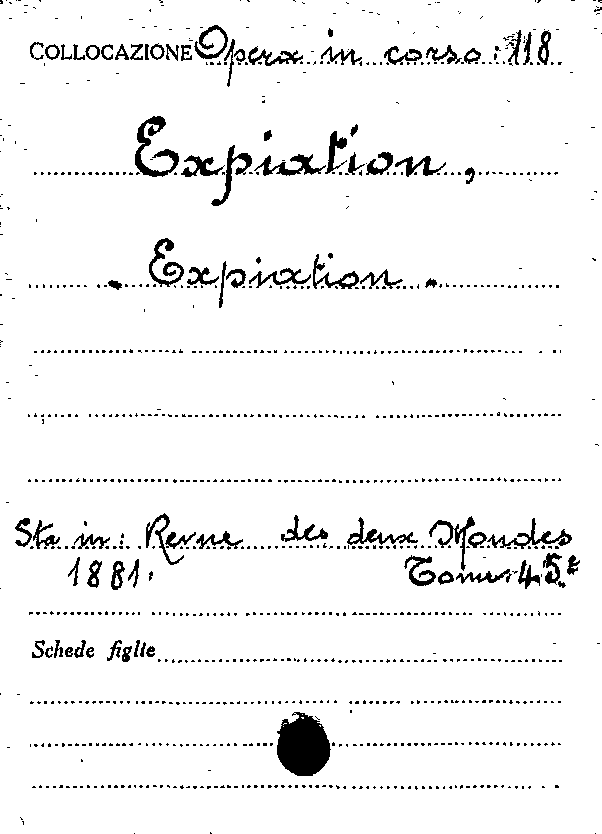 COLLOCAZIONE Opera in corso: 118
Expiation,
- Expiation -
Sta in: Revue des deux Mondes
1881. Tome 45.e
Schede figlie